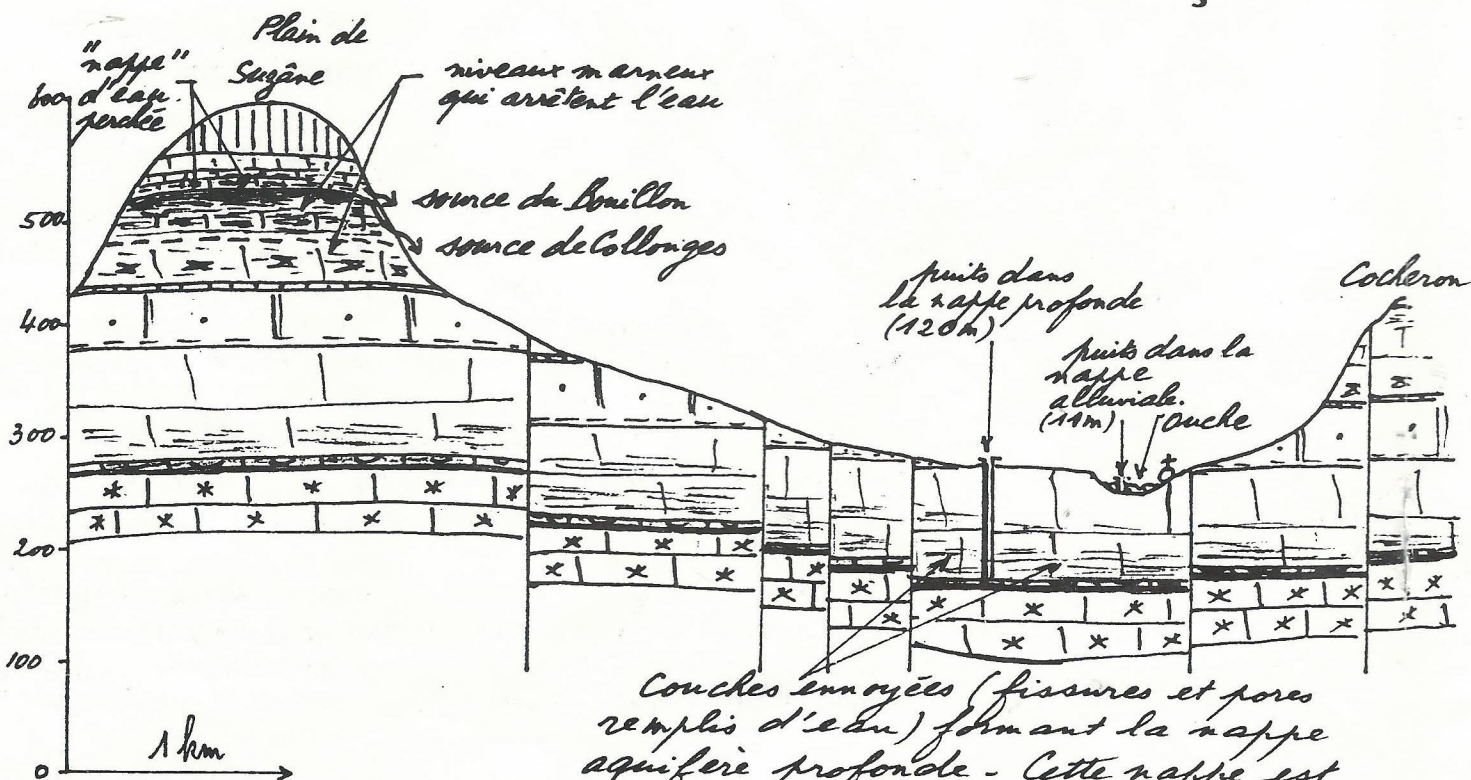 Plain de
Suzâne
"nappe"
d'eau
perchée
niveaux marneux
qui arrêtent l'eau
source du Bouillon
source de Collonges
puits dans
la nappe profonde
(120m)
puits dans la
nappe
alluviale.
(11m)
Ouche
Cocheron
600
500
400
300
200
100
0
1 km
Couches ennoyées (fissures et pores
remplis d'eau) formant la nappe
aquifère profonde - Cette nappe est